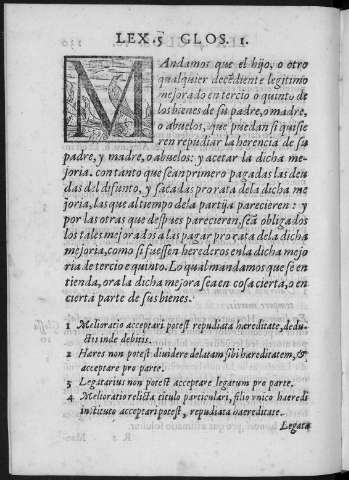 LEX. 5 GLOS. 1.
MAndamos que el hijo, o otro
qualquier decediente legitimo
mejorado en tercio o quinto de
los bienes de su padre, o madre,
o abuelos, que puedan si quisie
ren repudiar la herencia de su
padre, y madre, o abuelos: y acetar la dicha me-
joria. con tanto que sean primero pagadas las deu
das del difunto, y sacadas prorata de la dicha me
joria, las que al tiempo de la partija parecieren: y
por las otras que despues parecieren, sea obligados
los tales mejorados a las pagar prorata de la dicha
mejoria, como si fuessen herederos en la dicha mejo
ria de tercio e quinto. Lo qual mandamos que se en
tienda, ora la dicha mejora sea en cosa cierta, o en
cierta parte de sus bienes.
1 Melioratio acceptari potest repudiata hæreditate, dedu-
ctis inde debitis.
2 Hæres non potest diuidere delatam sibi hæreditatem, &
acceptare pro parte.
3 Legatarius non potest acceptare legatum pro parte.
4 Melioratio relicta titulo particulari, filio vnico hæredi
instituto acceptari potest, repudiata hæreditate.
Legata